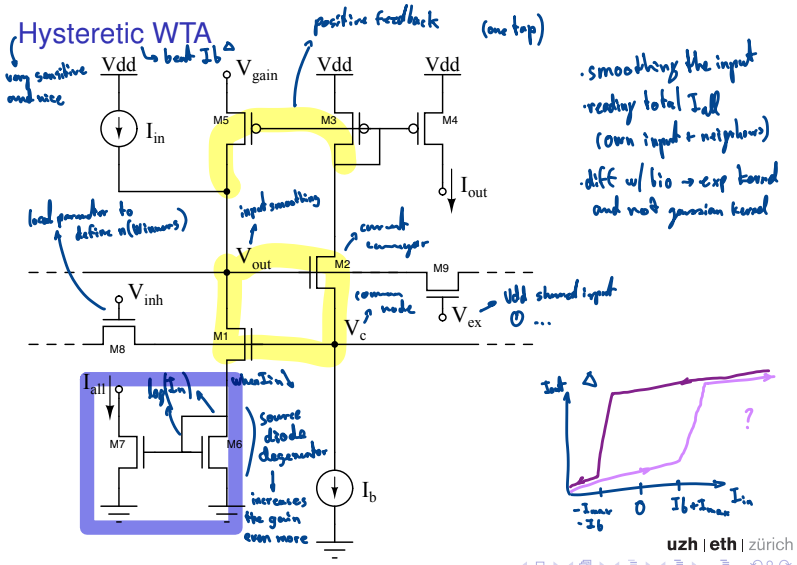 Hysteretic WTA
very sensitive
and nice
↳ beat Ib △
positive feedback
(one tap)
Vdd
Vgain
Vdd
Vdd
M5
M3
M4
Iin
Iout
· smoothing the input
· reading total Iall
(own input + neighours)
· diff w/ bio → exp kernel
and not gaussian kernel
local parameter to
define n(winners)
input smoothing
current
conveyor
Vout
M2
M9
Vinh
common
node
Vex
Vdd shared input
0 ...
M1
Vc
M8
Iall
log(In)
when Iin ↓
M7
M6
source
diode
degenerator
increases
the gain
even more
Ib
Iout
△
?
-Imax
-Ib
0
Ib+Imax
Iin
uzh | eth | zürich